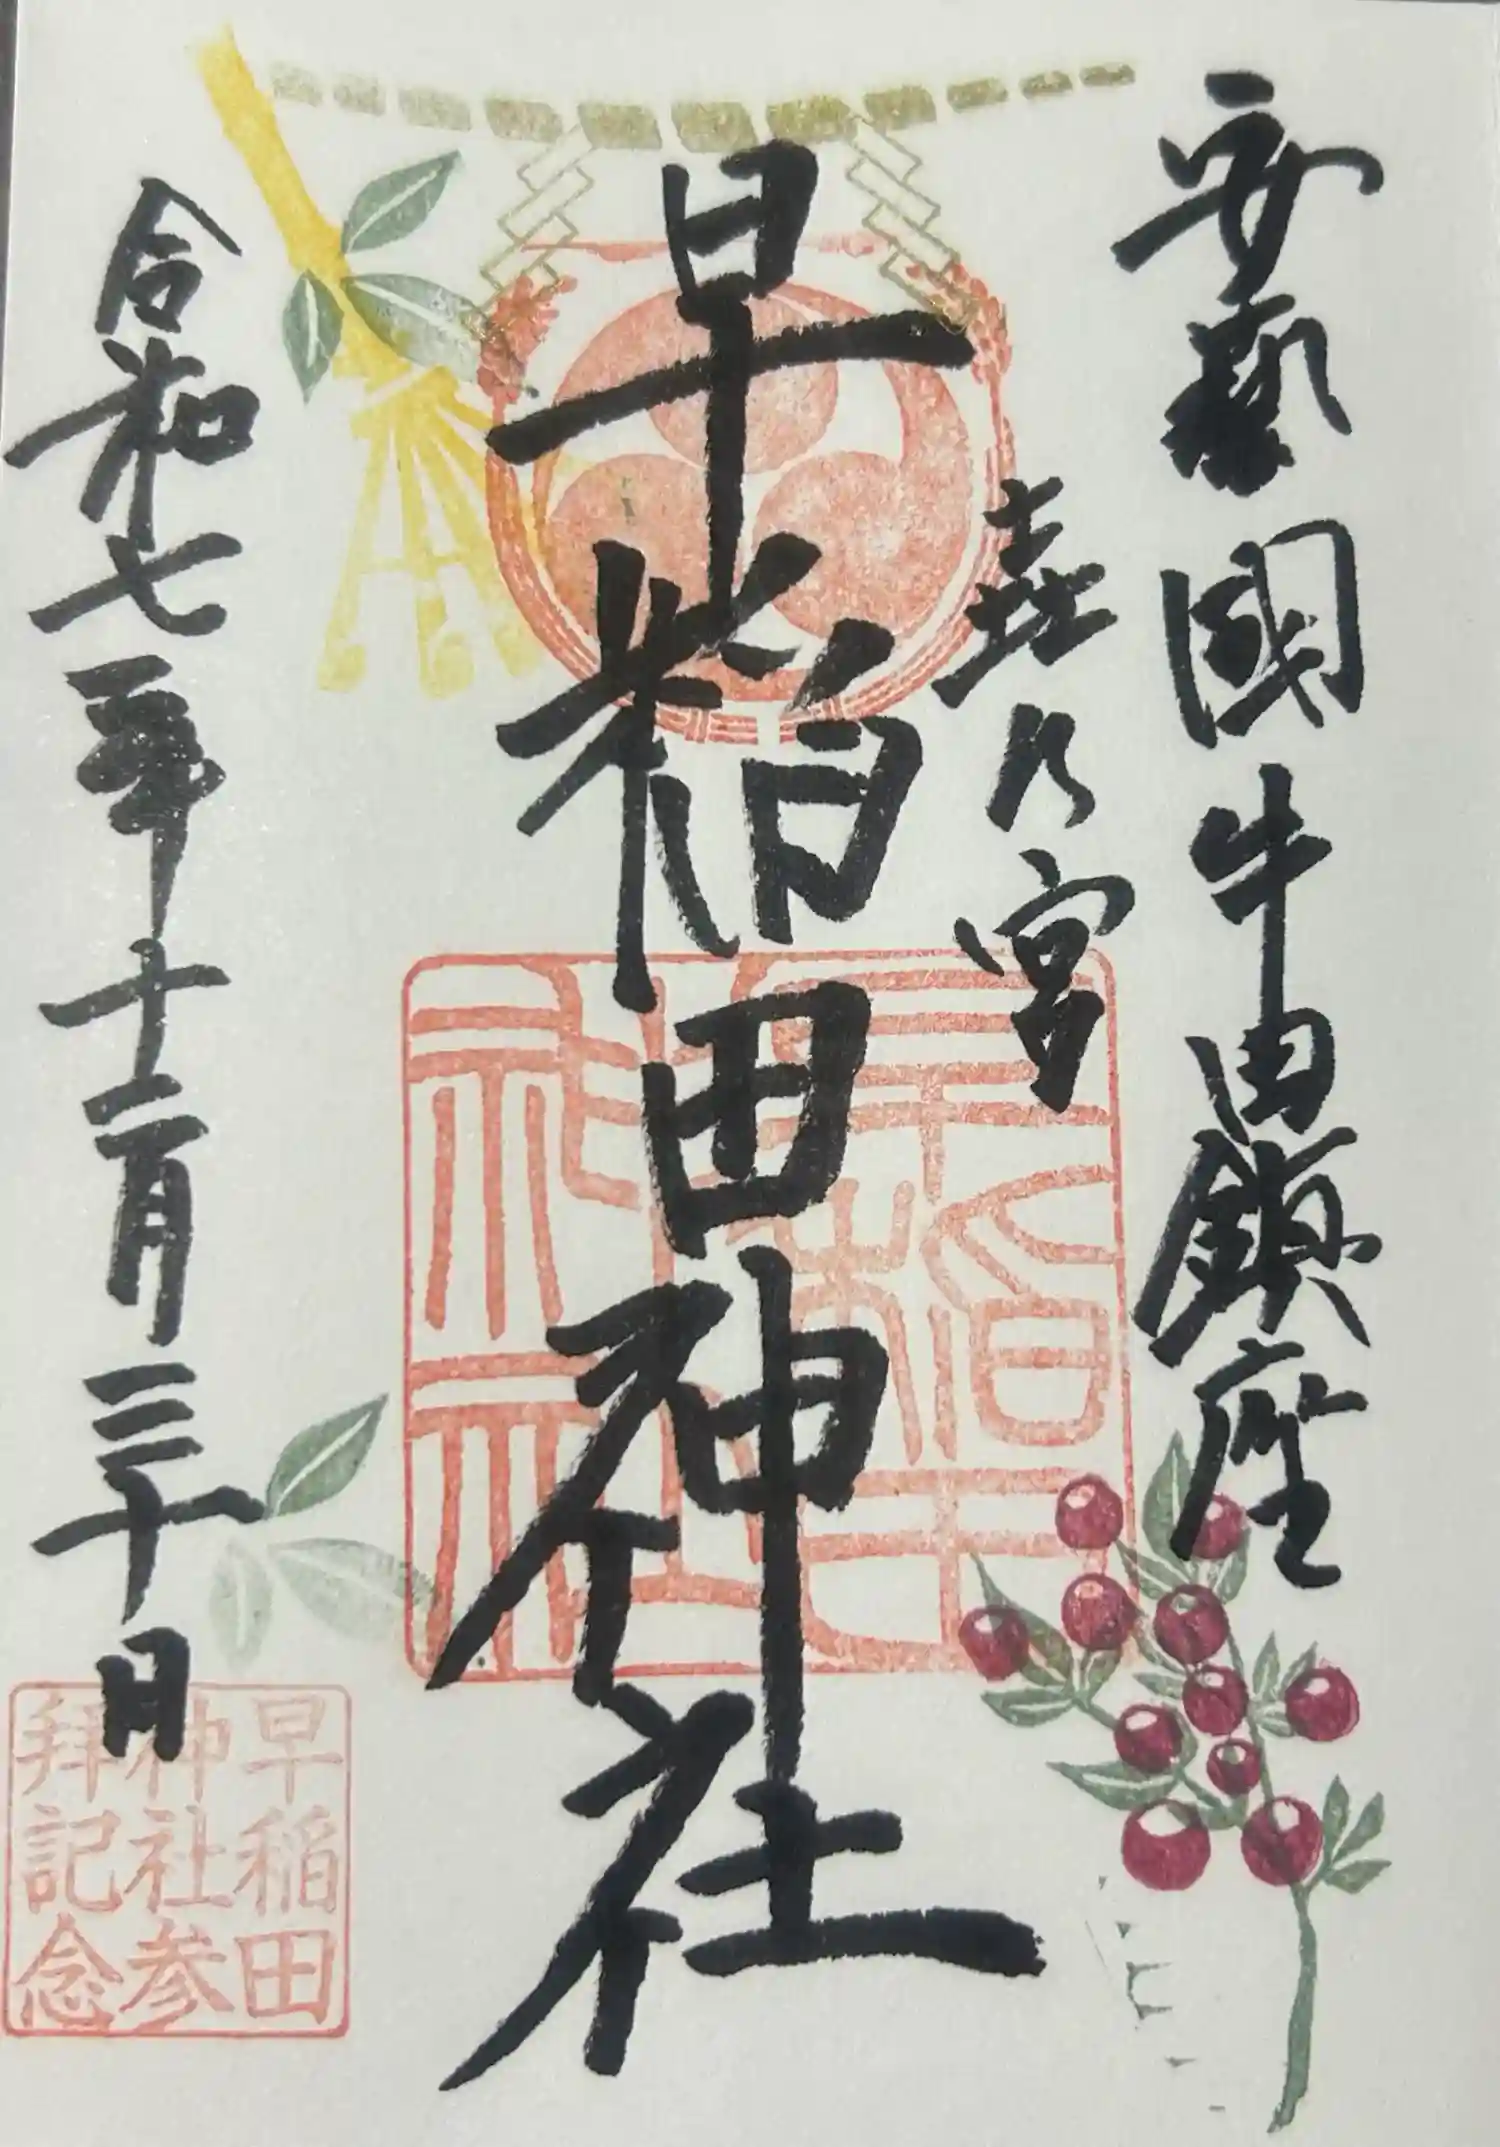 安藝國牛田鎮座
㐂乃宮
早稲田神社
令和七年十二月三十日
早稲田神社
早稲田
神社参
拝記念